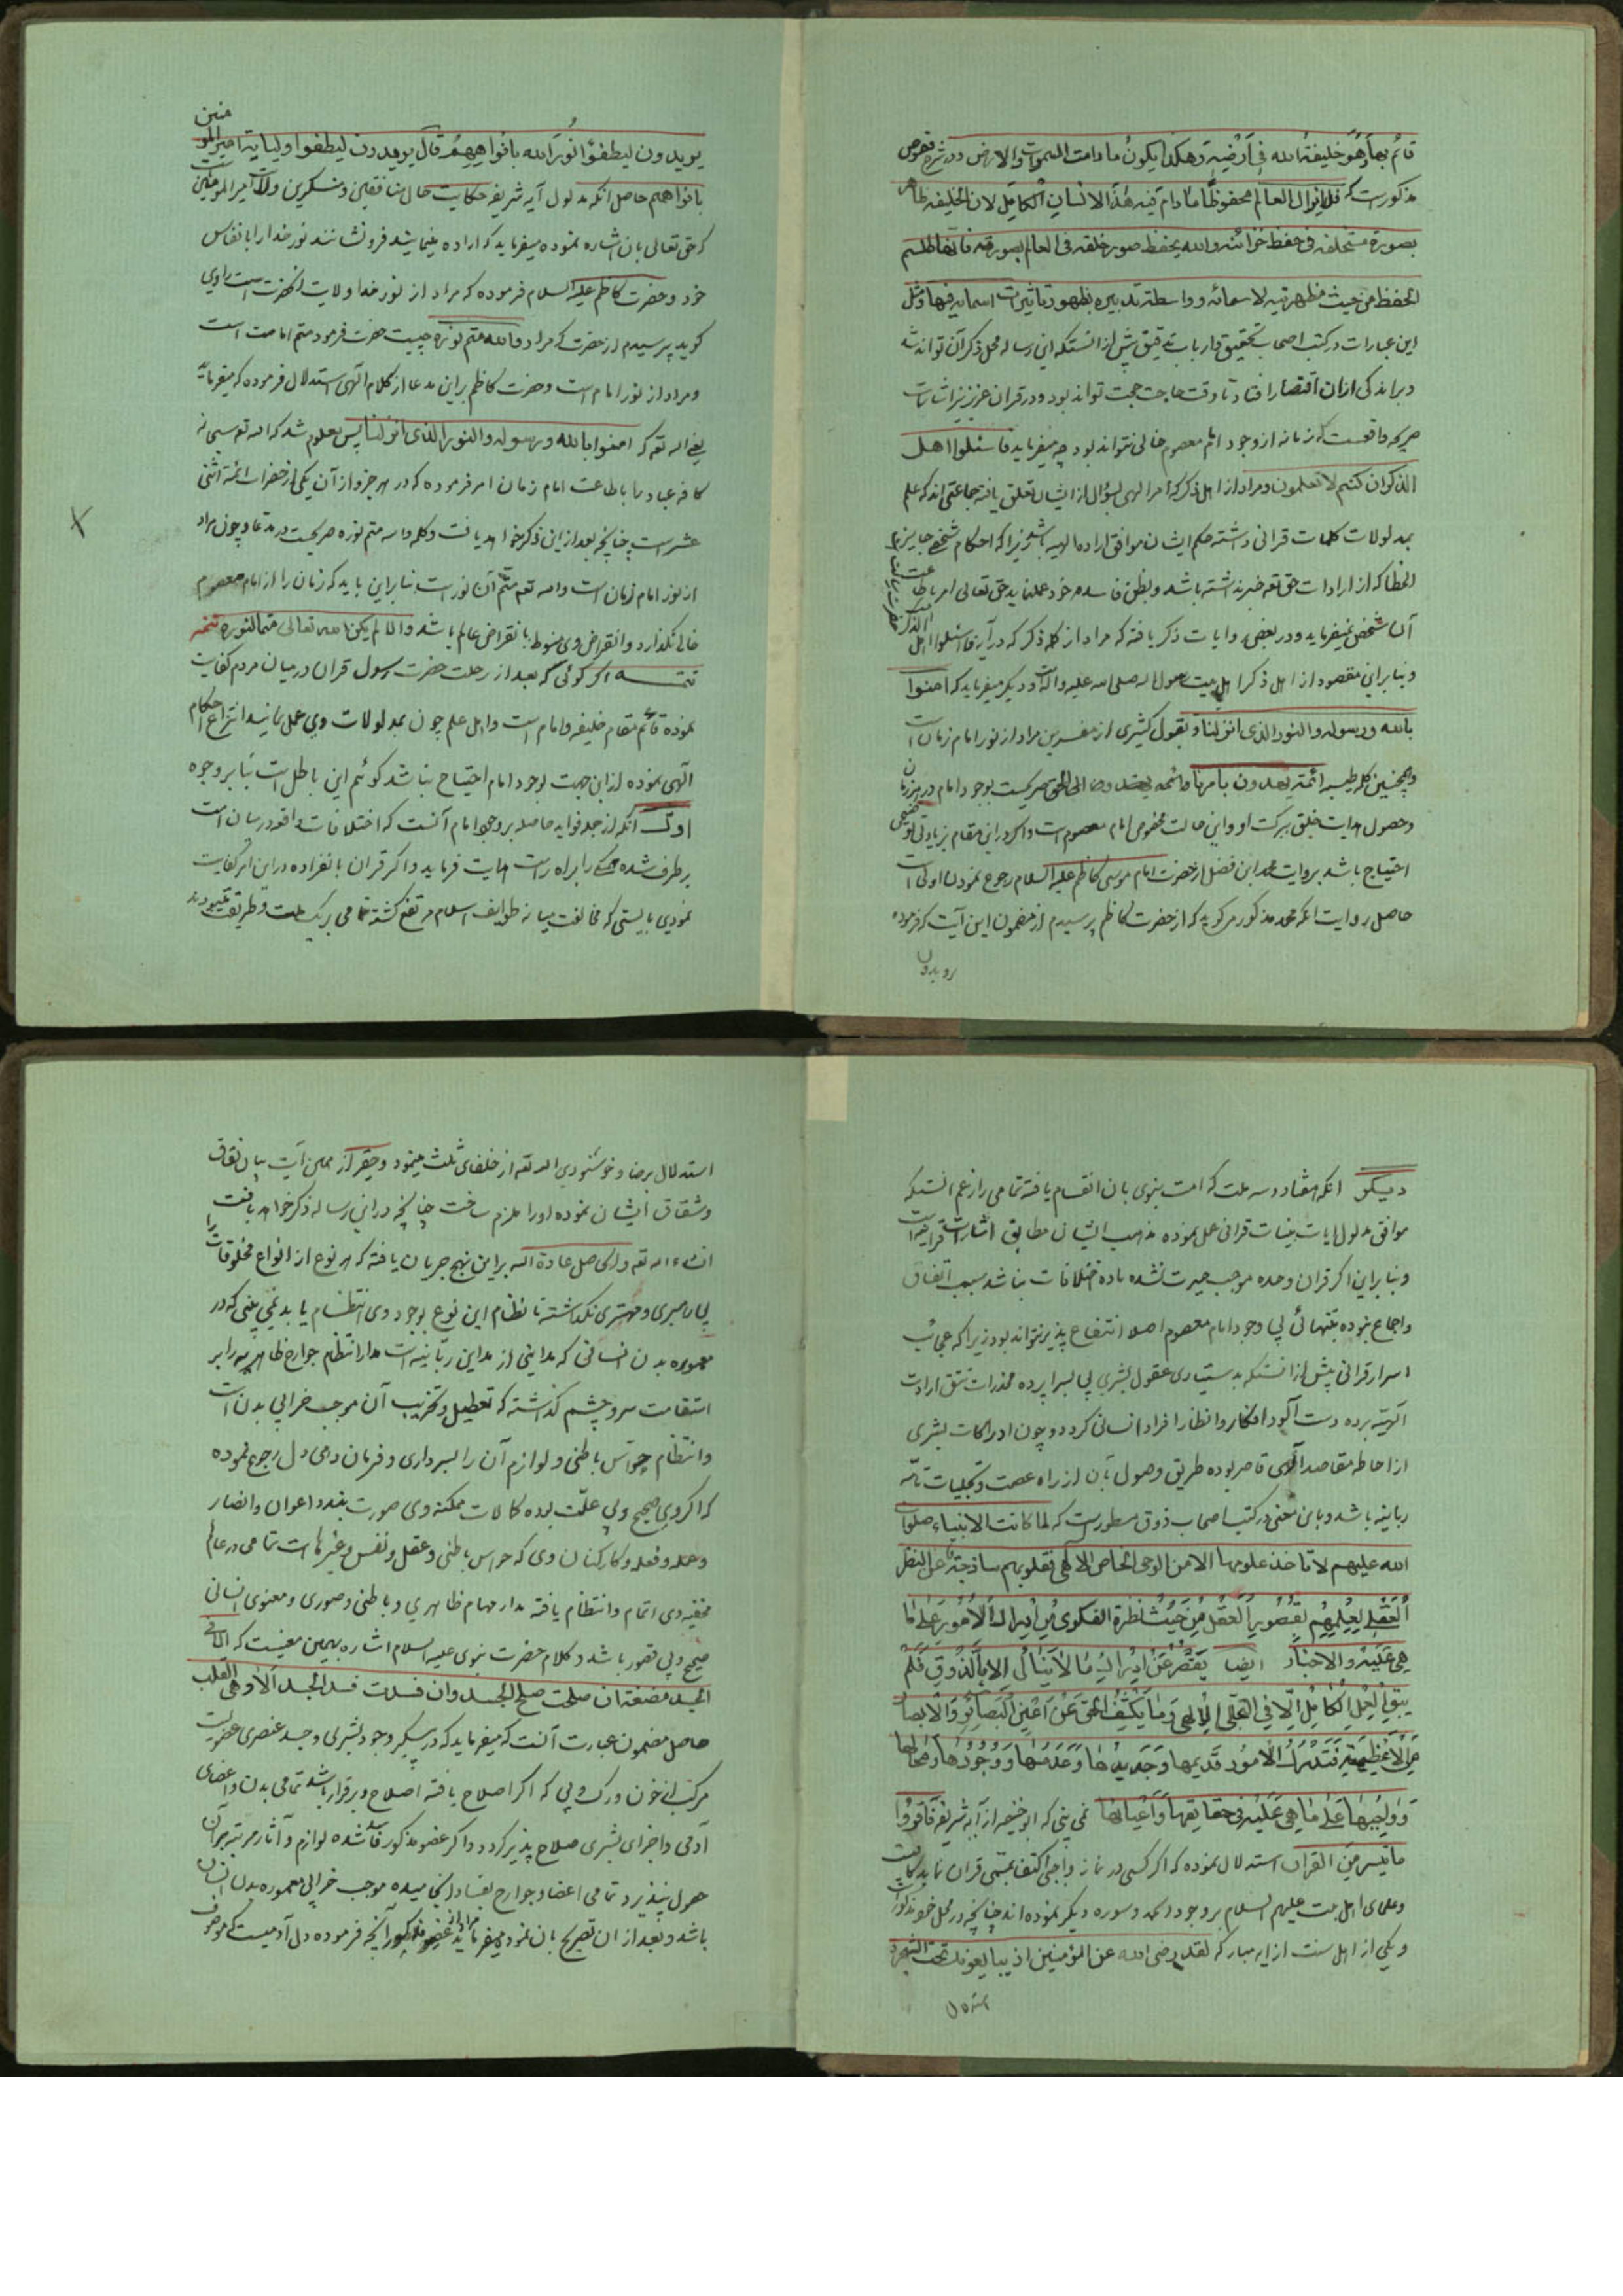 قائم بها وهو خلیفة الله فی ارضه و هکذا یکون ما دامت السموات والارض و در شرح فصوص
مذکورست که فلا یزال العالم محفوظا ما دام فیه هذا الانسان الکامل لان الخلیفه ظاهر
بصورة مستخلفه فی حفظ خزائنه والله یحفظ صور خلقه فی العالم بصورته فانها طلسم
الحفظ من حیث مظهریته لاسمائه و واسطة تدبیره بظهور تاثیرات اسمائه فیها و مثل
این عبارات در کتب اصحاب تحقیق و ارباب تدقیق بیش از انستکه این رساله محل ذکر آن تواند شد
و براندکی ازان اقتصار افتاد تا وقت حاجت حجت تواند بود و در قران عزیز نیز اشارات
صریحه واقعست که زمانه از وجود امام معصوم خالی نتواند بود چه میفرماید فاسئلوا اهل
الذکر ان کنتم لا تعلمون و مراد از اهل ذکر که امر الهی بسؤال از ایشان تعلق یافته جماعتی اند که علم
بمدلولات کلمات قرانی داشته حکم ایشان موافق اراده الهیه باشد زیرا که احکام شخصی جایز
الخطا که از ارادات حق تعه خبر نداشته باشد و بظن فاسده خود عمل نماید حق تعالی امر باطاعت
آن شخص نمیفرماید و در بعضی روایات ذکر یافته که مراد از کلمه ذکر که در آیه فاسئلوا اهل الذکر
و بنابراین مقصود از اهل ذکر اهل بیت رسول اله صلی الله علیه و اله است و دیگر میفرماید که امنوا
بالله و رسوله والنور الذی انزلنا و بقول کثیری از مفسرین مراد از نور امام زمان است
و همچنین کلمه طیبه ائمة یهدون بامرنا و ائمه یهدون الی الحق صریحست بوجود امام در هر زمان
و حصول هدایت خلق ببرکت او و این حالت مخصوص امام معصوم است و اگر در این مقام بزیادتی توضیحی
احتیاج باشد بروایت محمد ابن فضل از حضرت امام موسی کاظم علیه السلام رجوع نمودن اولی است
حاصل روایت انکه محمد مذکور میگوید که از حضرت کاظم پرسیدم از مضمون این آیت که فرموده
یریدون
یریدون لیطفؤا نور الله بافواههم قال یریدون لیطفوا ولایة امیر المومنین
بافواههم حاصل انکه مدلول آیه شریفه حکایت حال منافقین و منکرین ولایت امیر المومنین است
که حق تعالی بان اشاره نموده میفرماید که اراده مینمایند فرونشانند نور خدا را بانفاس
خود و حضرت کاظم علیه السلام فرموده که مراد از نور خدا ولایت انحضرت است راوی
گوید پرسیدم از حضرت که مراد والله متم نوره چیست حضرت فرمود متم امامت است
و مراد از نور امام است و حضرت کاظم براین مدعا از کلام الهی استدلال فرموده که میفرماید
یعنی اله تعه که امنوا بالله و رسوله والنور الذی انزلنا پس معلوم شد که اله تعه سبحانه
کافه عباد را باطاعت امام زمان امر فرموده که در هر جزو از آن یکی از حضرات ائمه اثنی
عشر است چنانچه بعد از این ذکر خواهد یافت و کلمه والله متم نوره صریحست در مدعا و چون مراد
از نور امام زمان است و اله تعه متم آن نور است بنابراین باید که زمان را از امام معصوم
خالی نگذارد و انقراض وی منوط بانقراض عالم باشد والا لم یکن اله تعالی متما لنوره تتمه
تتمه اگر گوئی که بعد از رحلت حضرت رسول قران در میان مردم کفایت
نموده قائم مقام خلیفه و امام است و اهل علم چون بمدلولات وی عمل نمایند انتزاع احکام
الهی نموده از این جهت بوجود امام احتیاج نباشد گوئیم این باطل است بنابر وجوه
اول انکه از جمله فواید حاصله بر وجود امام آنست که اختلافات واقعه در میان است
برطرف شده همه را براه راست هدایت فرماید و اگر قران بانفراده در این امر کفایت
نمودی بایستی که مخالفت میانه طوایف اسلام مرتفع گشته تمامی بریک ملت و طریقه میبودند
دیگر انکه هفتاد و سه ملت که امت نبوی بان انقسام یافته تمامی را زعم انستکه
موافق مدلول ایات بینات قرانی عمل نموده مذهب ایشان مطابق اشارات قرانیه است
و بنابراین اگر قران وحده موجب حیرت نشده ماده اختلافات نباشد سبب اتفاق
و اجماع نبوده بتنهائی بی وجود امام معصوم اصلا انتفاع پذیر نتواند بود زیرا که عجایب
اسرار قرانی بیش از انستکه بدستیاری عقول بشری پی بسراپرده مخدرات تتق ارادت
الهیه برده دست آلود افکار و انظار افراد انسانی گردد و چون ادراکات بشری
از احاطه مقاصد الهی قاصر بوده طریق وصول بان از راه عصمت و تجلیات تامه
ربانیه باشد و باین معنی در کتب اصحاب ذوق مسطورست که لما کانت الانبیاء صلوات
الله علیهم لا تاخذ علومها الا من الوحی الخاص الالهی فقلوبهم ساذجة عن النظر
العقلی لعلمهم بقصور العقل من حیث نظره الفکری من ادراک الامور علی ما
هی علیه والاخبار ایضا یقصر عن ادراک ما لا ینال الا بالذوق فلم
یبق العلم الکامل الا فی التجلی الالهی و ما یکشف الحق عن اعین البصائر والابصار
من الاغطیة فتدرک الامور قدیمها و جدیدها و عدمها و وجودها و محالها
و واجبها علی ما هی علیه فی حقایقها و اعیانها نمی بینی که ابوحنیفه از آیه شریفه فاقروا
ما تیسر من القران استدلال نموده که اگر کسی در نماز واجبی اکتفا بمسمی قران نماید کافیست
و علمای اهل بیت علیهم السلام بر وجود الحمد و سوره دیگر نموده اند چنانچه در محل خود مذکور است
و یکی از اهل سنت از ایه مبارکه لقد رضی الله عن المؤمنین اذ یبایعونک تحت الشجرة
استدلال
استدلال برضا و خوشنودی اله تعه از خلفای ثلث مینمود و حقیر از همین آیت بیان نفاق
و شقاق ایشان نموده او را ملزم ساخت چنانچه در این رساله ذکر خواهد یافت
انشاء اله تعه و الحاصل عادة اله براین نهج جریان یافته که هر نوع از انواع مخلوقات را
بی راهبری و مهتری نگذاشته تا نظام این نوع بوجود وی انتظام یابد نمی بینی که در
معموره بدن انسانی که مداینی از مداین ربانیه است مدار انتظام جوارح ظاهریه را بر
استقامت سر و چشم گذاشته که تعطیل و تخریب آن موجب خرابی بدن است
و انتظام حواس باطنی و لوازم آن را بسرداری و فرمان دهی دل رجوع نموده
که اگر وی صحیح و بی علت بوده کمالات ممکنه وی صورت بندد اعوان و انصار
و عمله و فعله و کارکنان وی که حواس باطنی و عقل و نفس و غیرها است تمامی در عالم
مخفیه وی اتمام و انتظام یافته مدار مهام ظاهری و باطنی و صوری و معنوی انسانی
صحیح و بی قصور باشد و کلام حضرت نبوی علیه السلام اشاره بهمین معنیست که ان فی
الجسد مضغة ان صلحت صلح الجسد وان فسدت فسد الجسد الا و هی القلب
حاصل مضمون عبارت آنست که میفرماید که در پیکر وجود بشری و جسد عنصری عضویست
مرکب از خون و رگ و پی که اگر اصلاح یافته اصلاح و برقرار باشد تمامی بدن و اعضای
آدمی و اجزای بشری صلاح پذیر گردد و اگر عضو مذکور فاسد شده لوازم و آثار مرتبه بر آن
حصول نپذیرد تمامی اعضا و جوارح بفساد انجامیده موجب خرابی معموره بدن انسان
باشد و بعد از ان تصریح بان نمود میفرماید مراد از عضو مذکور آنچه فرموده دل آدمیست که موصوف